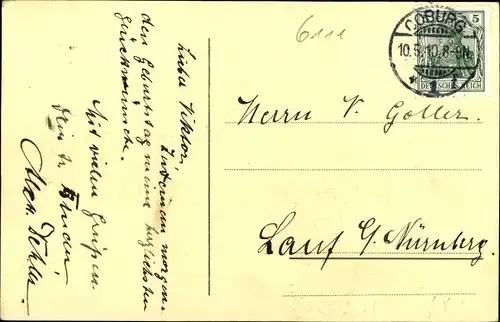 6111
COBURG
10.5.10.8-9N.
5
DEUTSCHES REICH
Herrn V. Goller.
Lauf b/ Nürnberg.
Lieber Viktor,
zu deinem morgen
den Geburtstag meine herzlichsten
Glückwünsche.
Mit vielen Grüßen
dein tr.
Alex.